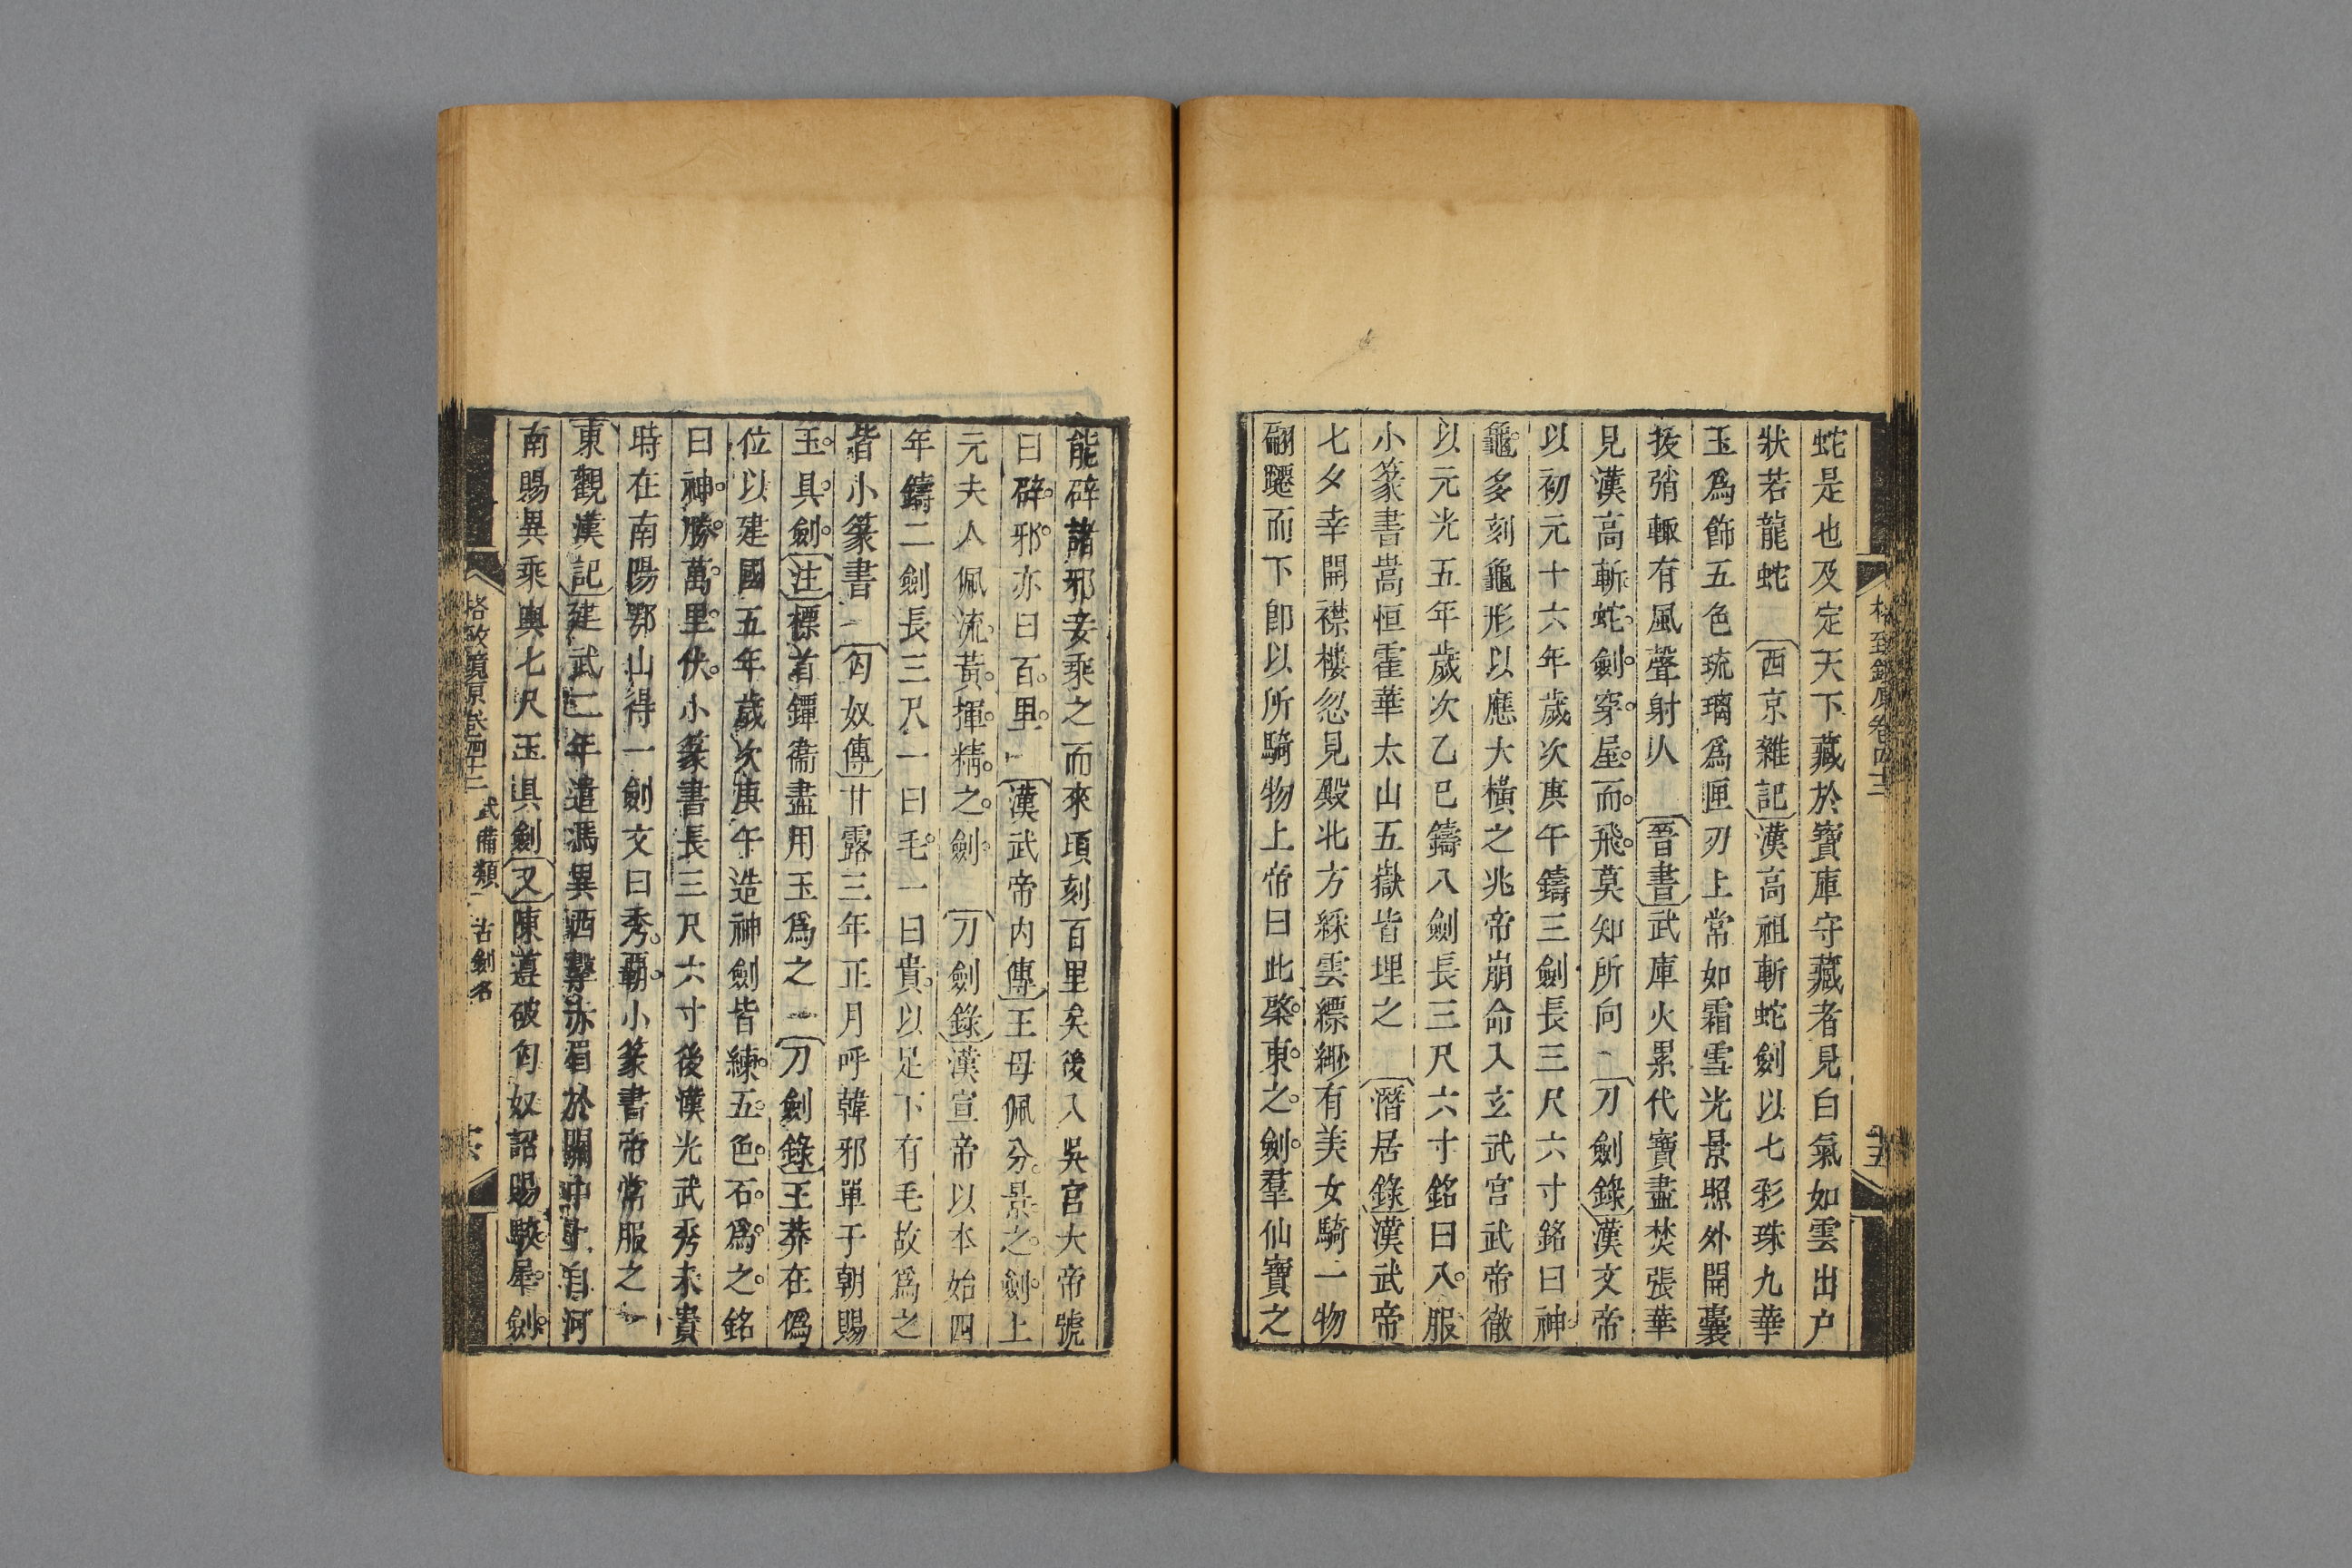 格致鏡原卷四十二
十五
蛇是也及定天下藏於寶庫守藏者見白氣如雲出户
狀若龍蛇 西京雜記漢高祖斬蛇劍以七彩珠九華
玉爲飾五色琉璃爲匣刃上常如霜雪光景照外開囊
拔弰輙有風聲射人 晉書武庫火累代寶盡焚張華
見漢高斬蛇劍穿屋而飛莫知所向 刀劍錄漢文帝
以初元十六年歲次庚午鑄三劍長三尺六寸銘曰神
龜多刻龜形以應大橫之兆帝崩命入玄武宮武帝徹
以元光五年歲次乙巳鑄八劍長三尺六寸銘曰八服
小篆書嵩恒霍華太山五嶽皆埋之 潛居錄漢武帝
七夕幸開襟樓忽見殿北方綵雲縹緲有美女騎一物
翩躚而下卽以所騎物上帝曰此檗東之劍羣仙寶之
能碎諸邪妾乘之而來頃刻百里矣後入吳官大帝號
曰碎邪亦曰百里 漢武帝内傳王母佩分景之劍上
元夫人佩流黃揮精之劍 刀劍錄漢宣帝以本始四
年鑄二劍長三尺一曰毛一曰貴以足下有毛故爲之
皆小篆書 匈奴傳甘露三年正月呼韓邪單于朝賜
玉具劍注標首鐔衞盡用玉爲之 刀劍錄王莽在僞
位以建國五年歲次庚午造神劍皆練五色石爲之銘
曰神勝萬里伏小篆書長三尺六寸後漢光武秀未貴
時在南陽鄂山得一劍文曰秀霸小篆書帝常服之
東觀漢記建武二年遣馮異西擊赤眉於關中上自河
南賜異乘輿七尺玉具劍又陳遵破匈奴詔賜駮犀劍
格致鏡原卷四十二 武備類一 古劍名